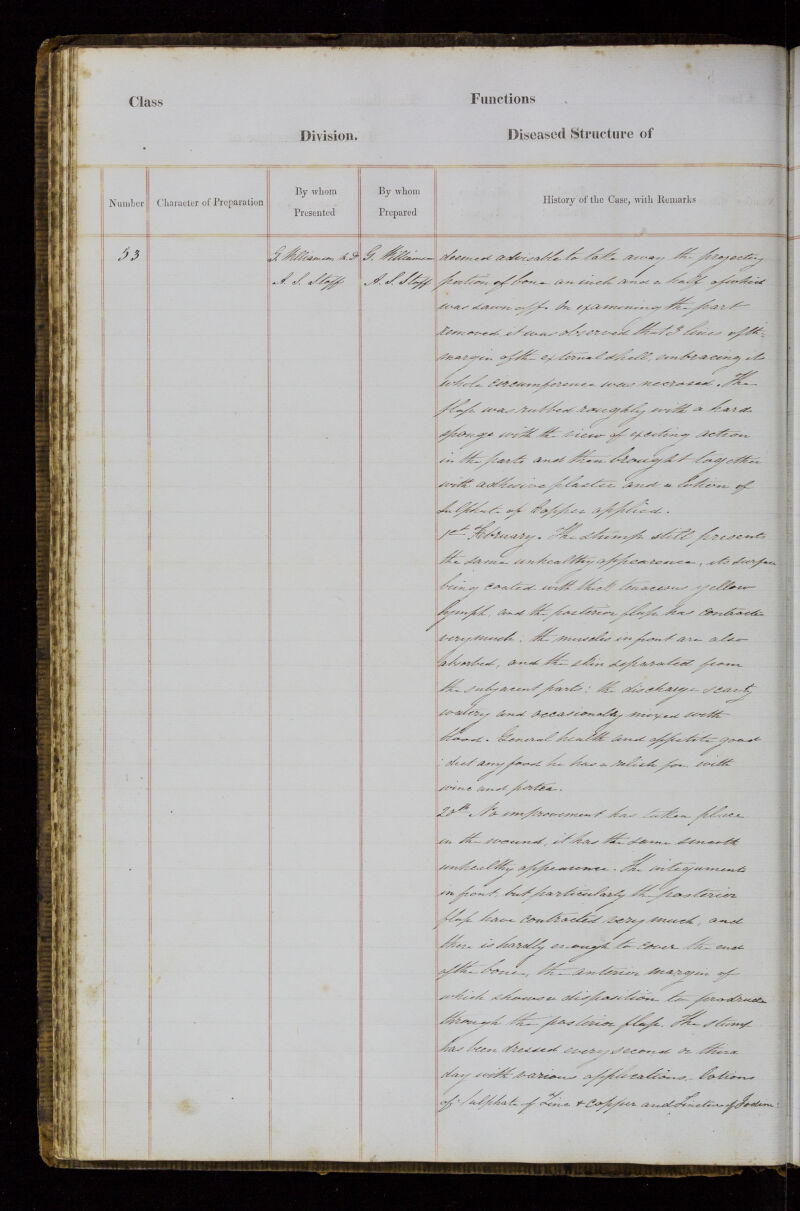 Class
Functions
Division.
Diseased Structure of
Number
Character of Preparation
By whom
Presented
By whom
Prepared
History of the Case, with Remarks
53
G. Williamson M.D
A. S. Staff
G. Williamson
A. S. Staff
deemed advisable to take away the projecting
portion of bone an inch and a half of which
was sawn off. On examining the part
removed it was observed that 3 lines of the
margin of the external shell, embracing its
whole circumference was necrosed. The
flap was rubbed roughly with a hard
sponge with the view of exciting action
in the parts and then brought together
with adhesive plaster and a lotion of
Sulphate of Copper applied.
1st February. The stump still presents
the same unhealthy appearance, its surface
being coated with thick tenaceous yellow
lymph, and the posterior flap has contracted
very much; the muscles in front are also
absorbed, and the skin separated from
the subjacent parts: the discharge scanty
watery and occasionally mixed with
blood. General health and appetite good
: diet any food he has a relish for with
wine and porter.
20th No improvement has taken place
in the wound, it has the same smooth
unhealthy appearance. The integuments
in front, but particularly the posterior
flap have contracted very much, and
there is hardly enough to cover the end
of the bone, the anterior margin of
which shows a disposition to protrude
through the posterior flap. The stump
has been dressed every second or third
day with various applications. Lotions
of Sulphate of Zinc & Copper and Tincture of Iodine: